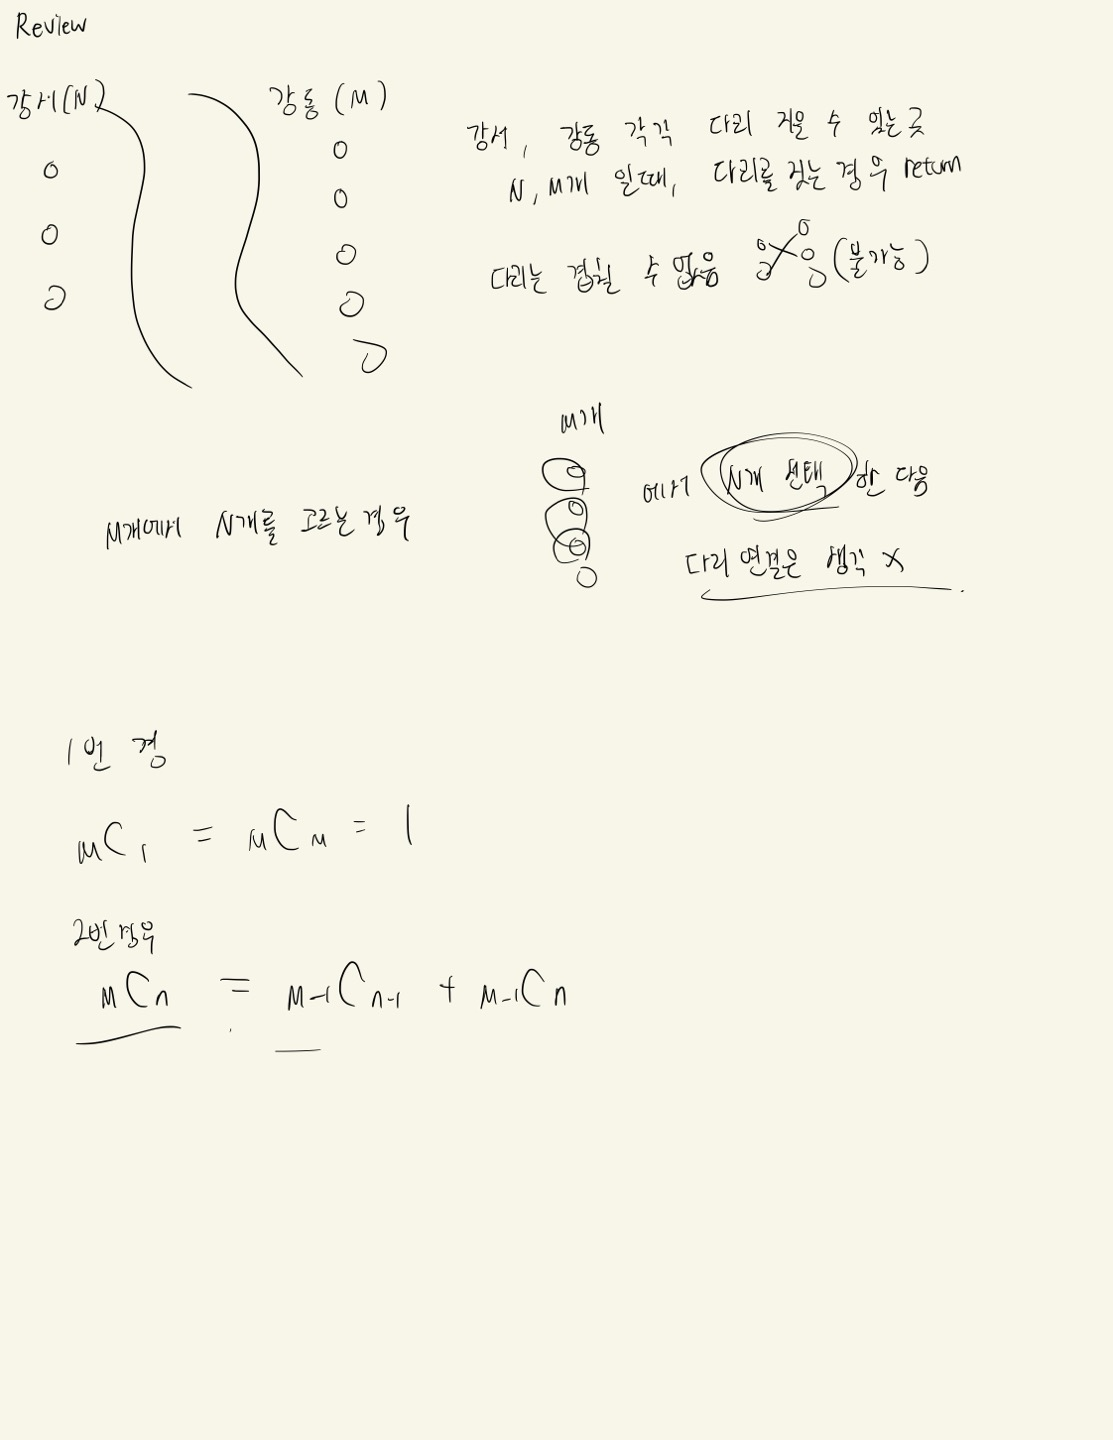 Review
강서(N)
강동(M)
강서, 강동 각각 다리 지을 수 있는 곳
N, M개 일때, 다리를 짓는 경우 return
다리는 겹칠 수 없음 (불가능)
M개
에서 N개 선택 한 다음
다리 연결은 생각 X
M개에서 N개를 고르는 경우
1번 경
MC1 = MCM = 1
2번경우
MCn = M-1Cn-1 + M-1Cn